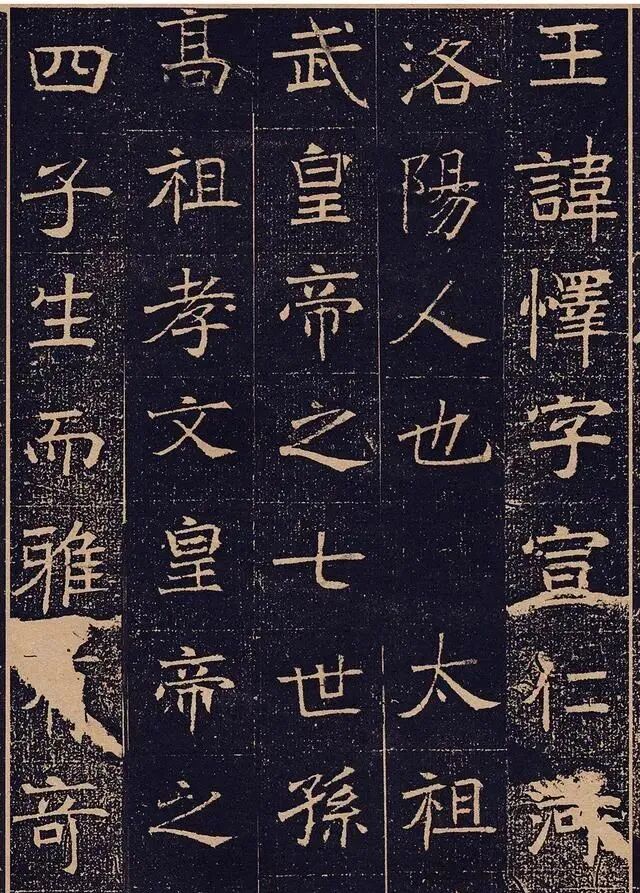 王諱懌字宣仁河
洛陽人也 太祖
武皇帝之七世孫
髙祖孝文皇帝之
四子生而雅奇